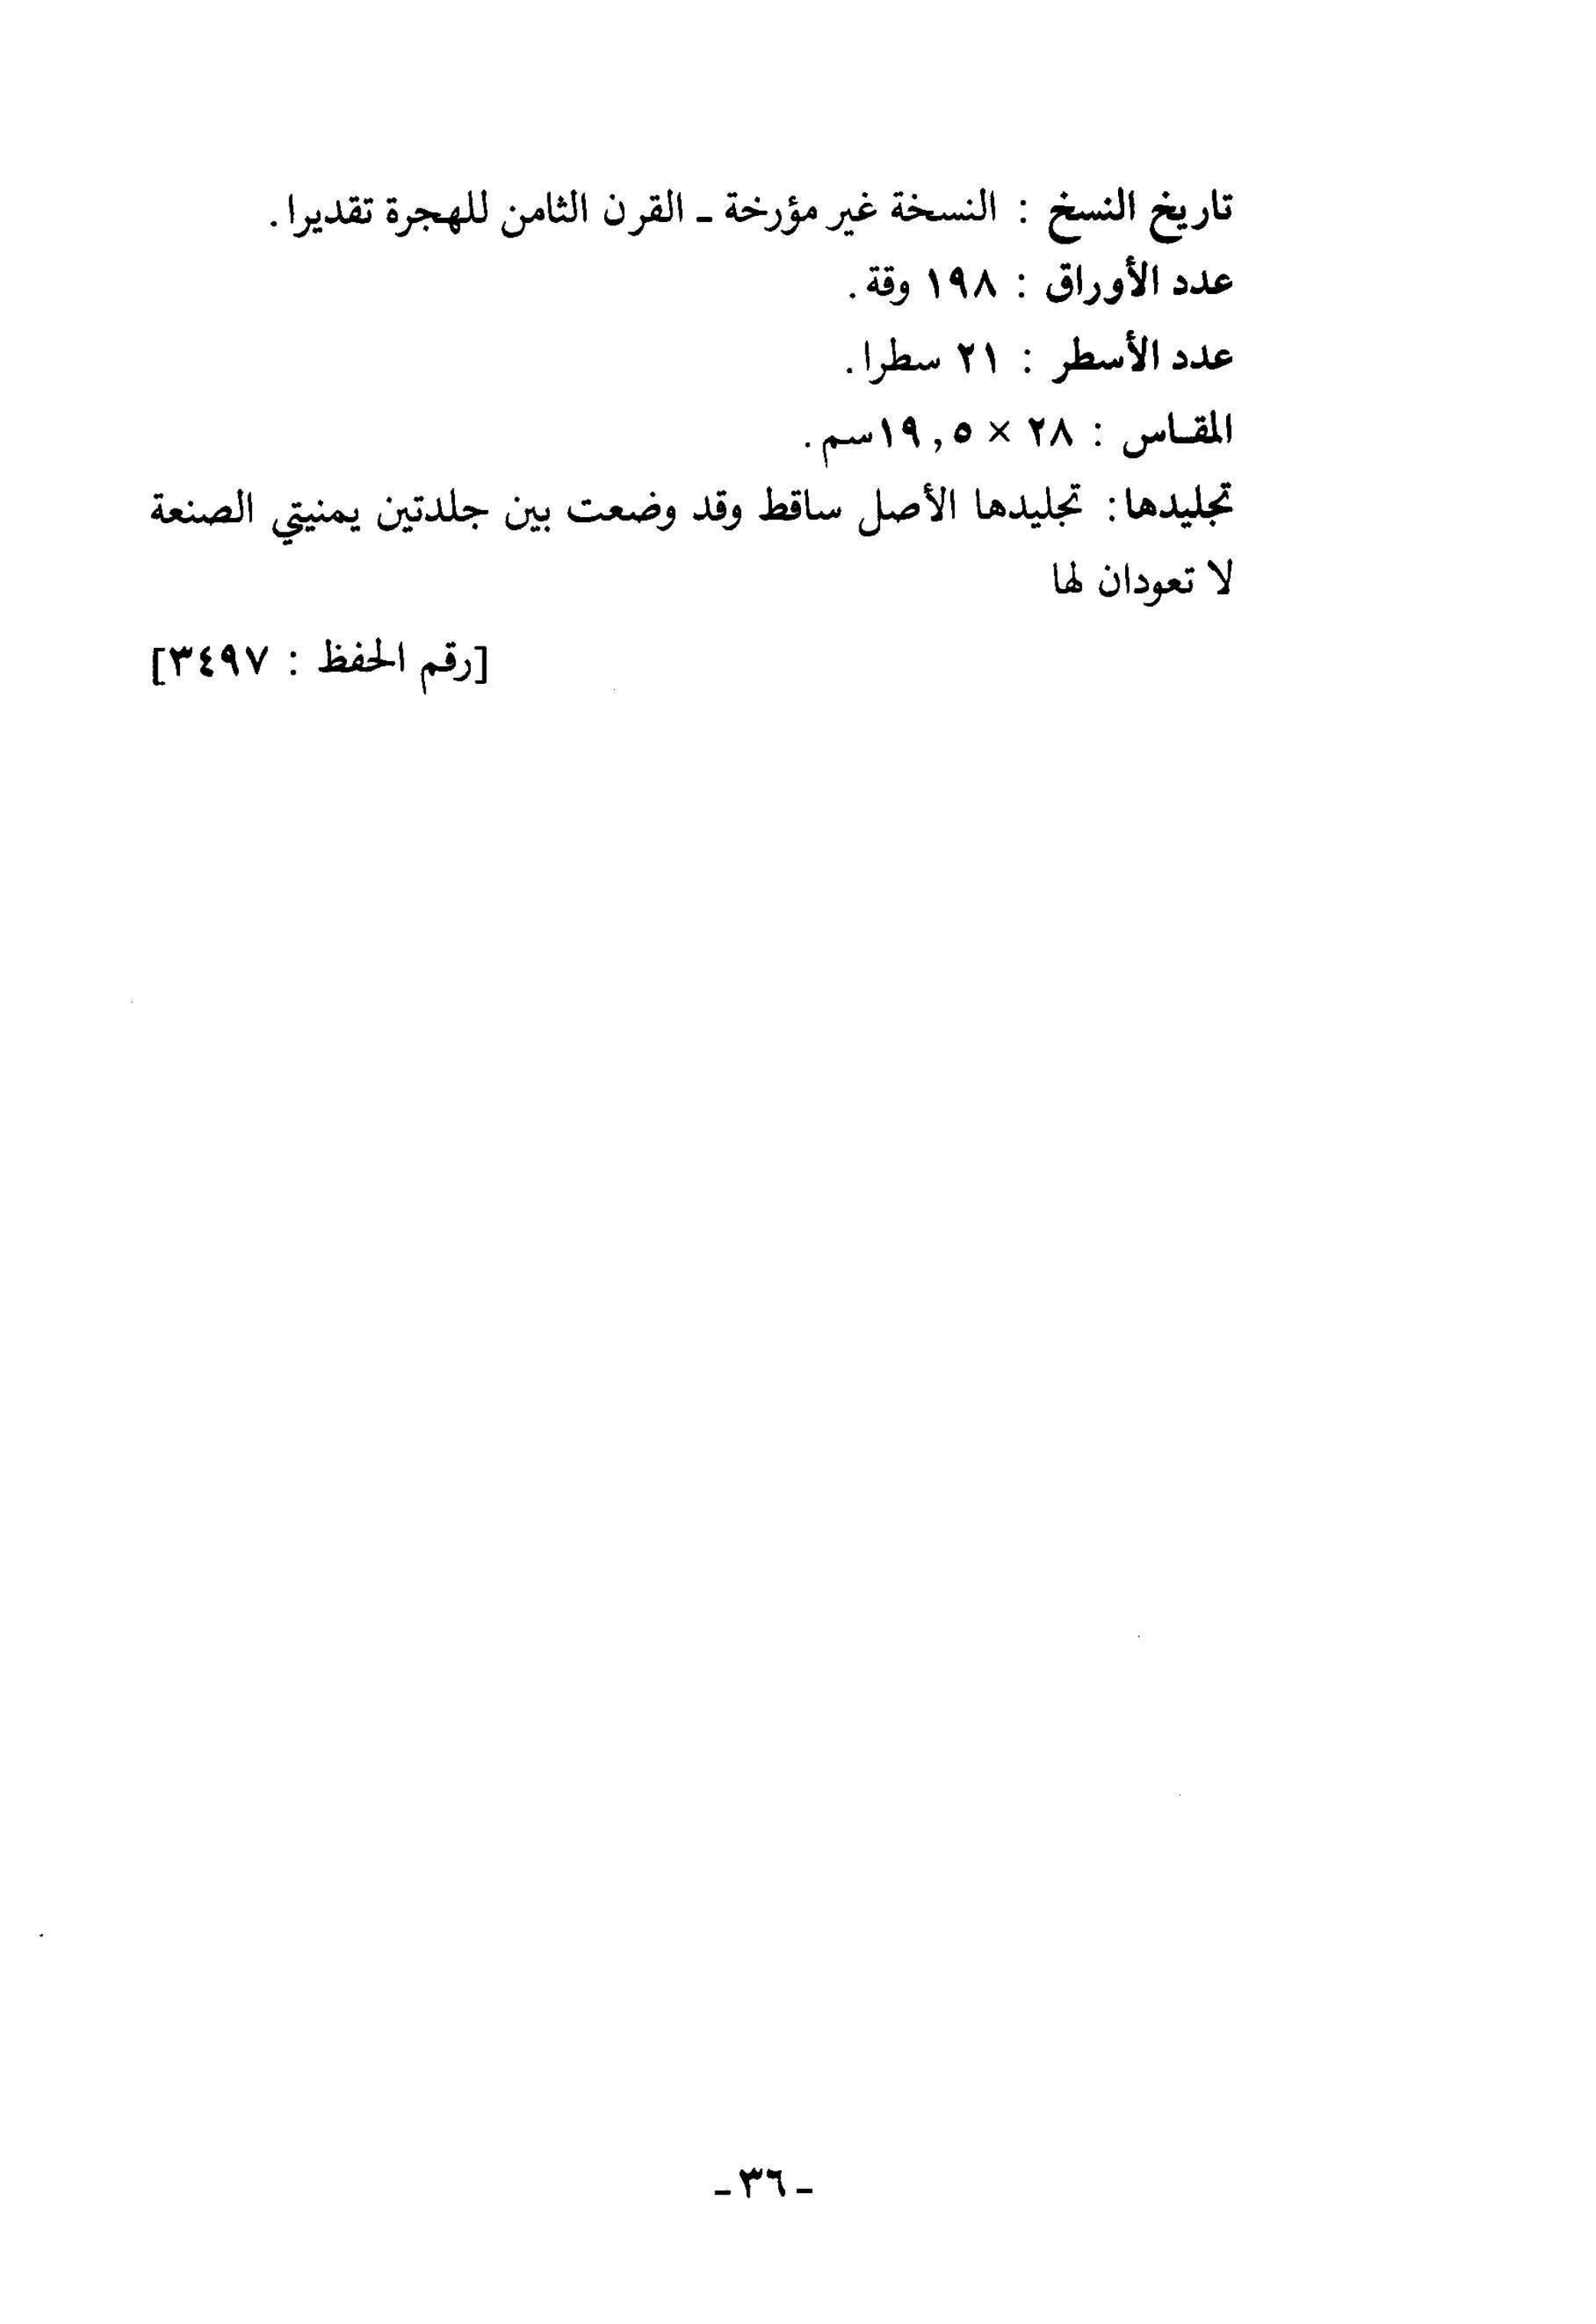 تاريخ النسخ : النسخة غير مؤرخة ـ القرن الثامن للهجرة تقديرا .
عدد الأوراق : ١٩٨ وقة .
عدد الأسطر : ٢١ سطرا .
المقـاس : ٢٨ × ١٩,٥سم .
تجليدها : تجليدها الأصل ساقط وقد وضعت بين جلدتين يمنيتي الصنعة
لا تعودان لها
[رقم الحفظ : ٣٤٩٧]
ـ ٣٦ ـ